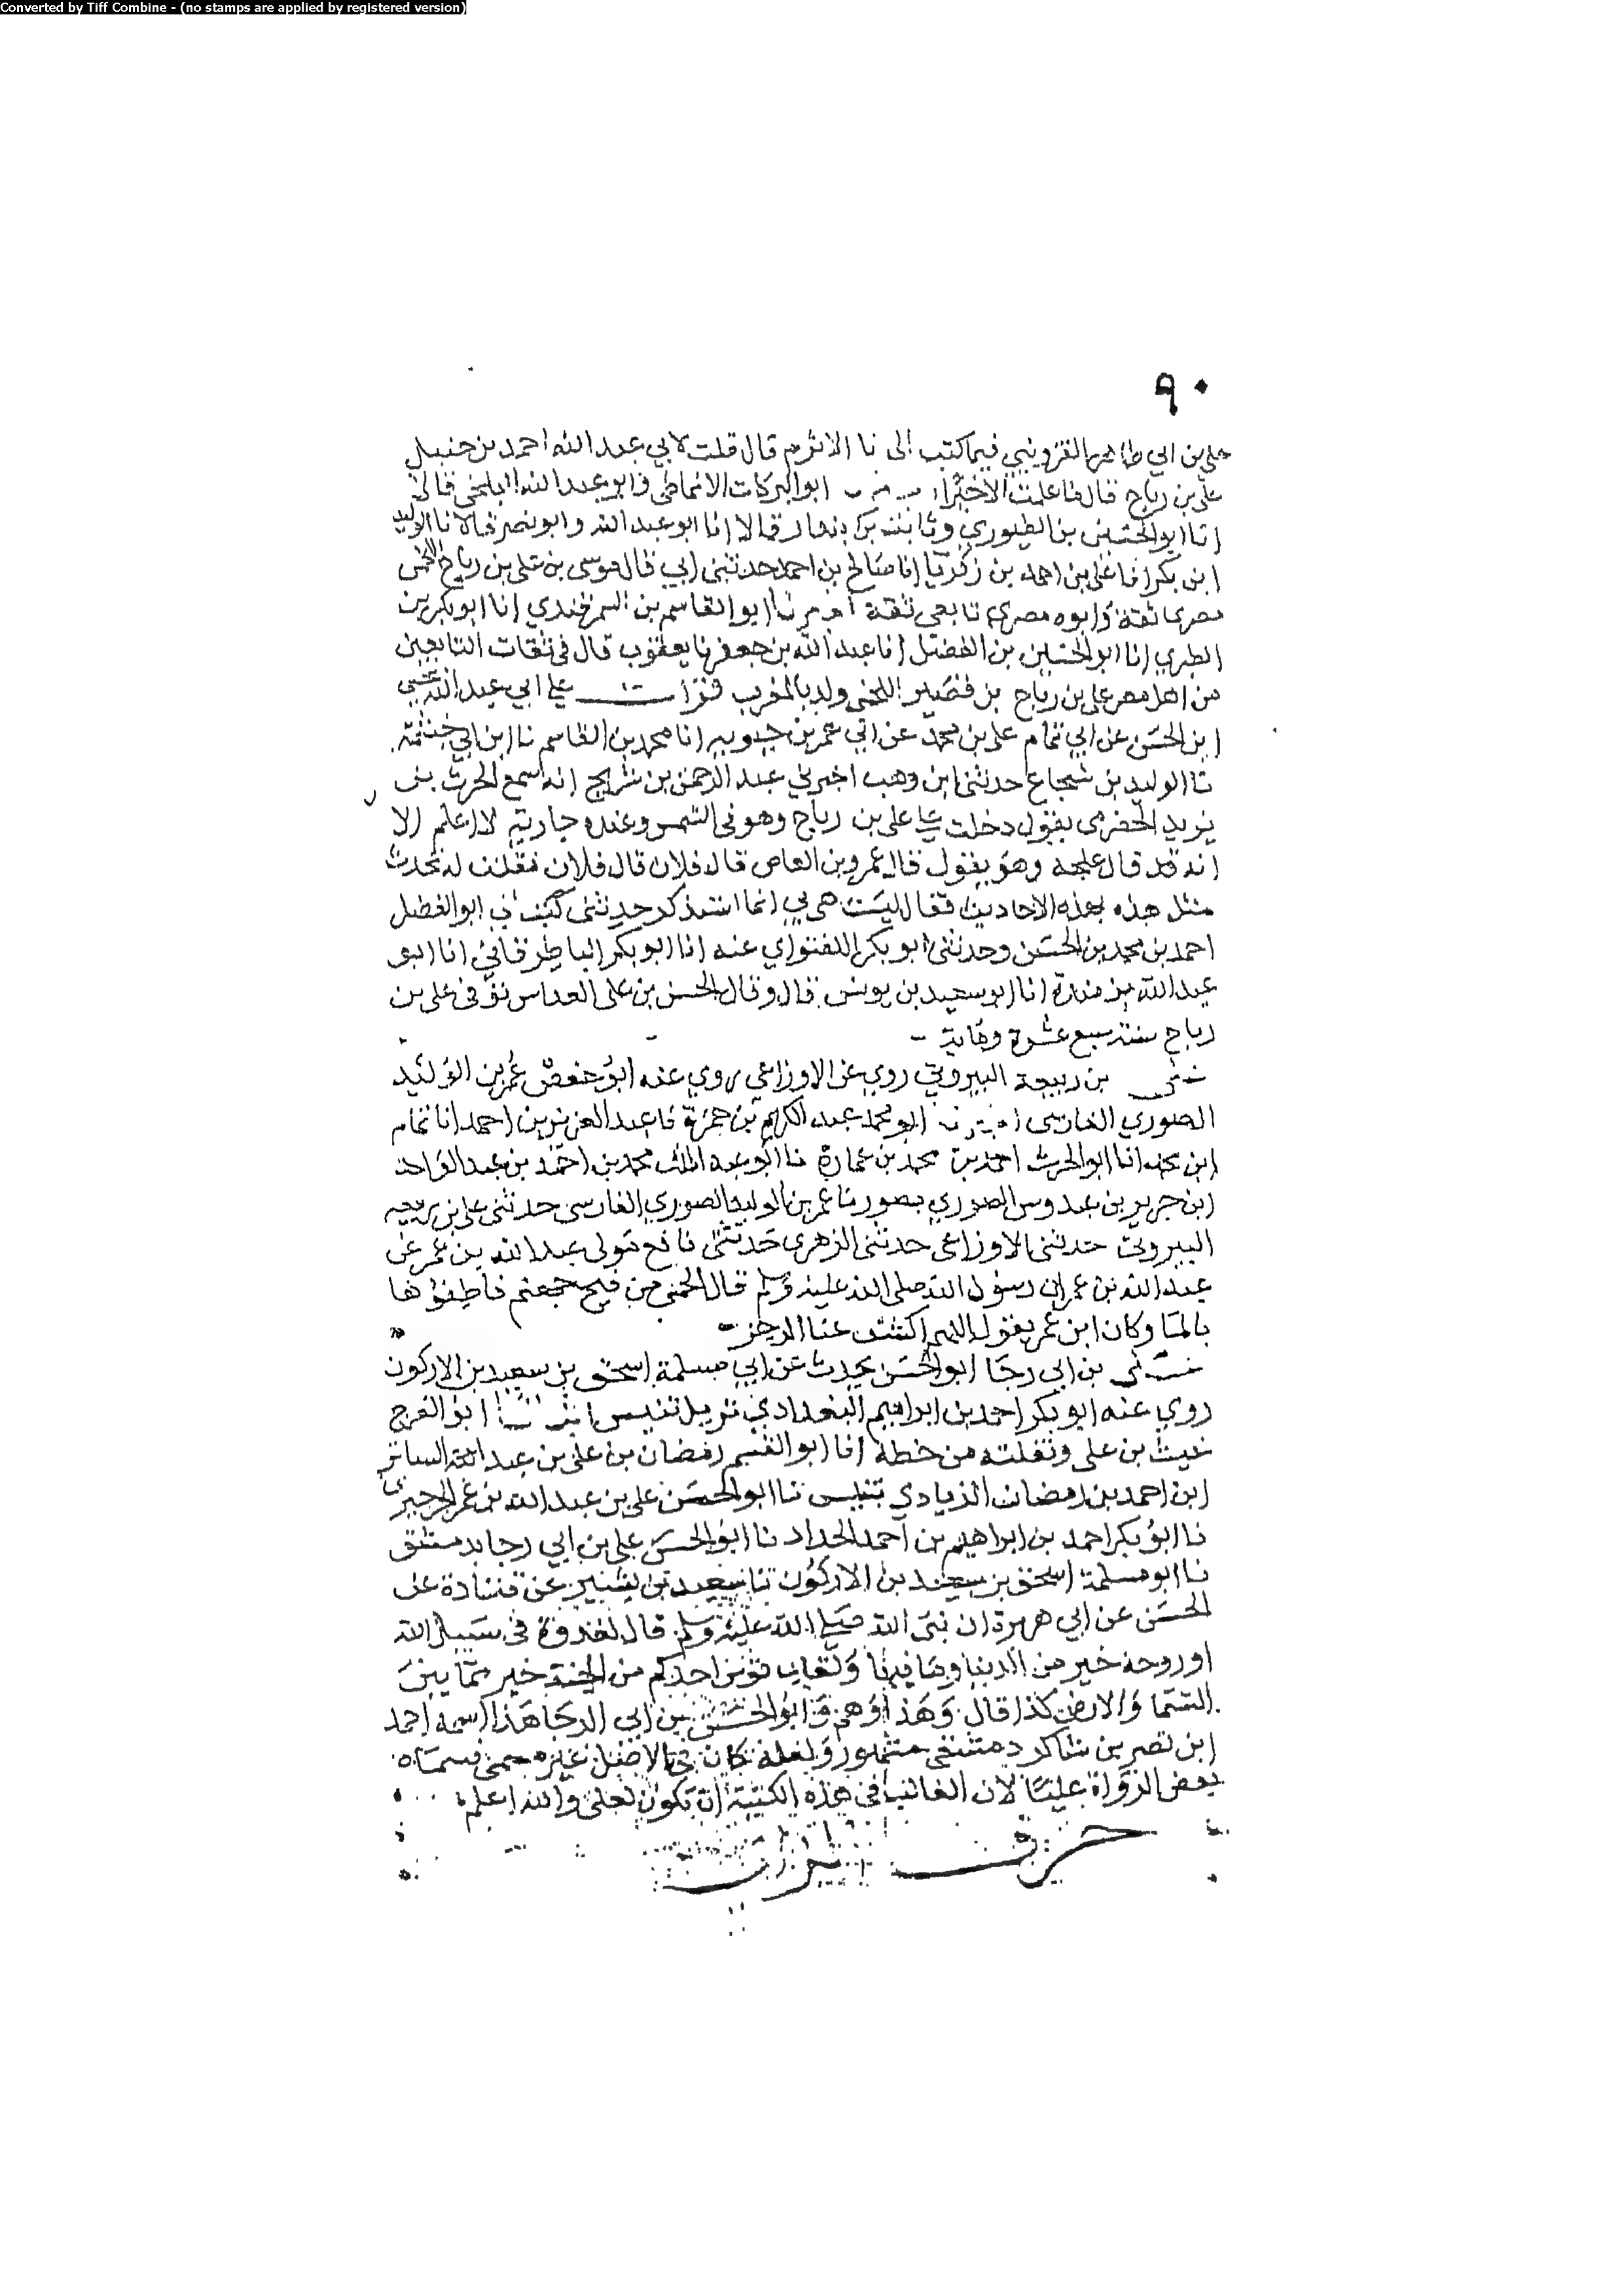 Converted by Tiff Combine - (no stamps are applied by registered version)
٩٠
علي بن ابي طاهر القزويني فيما كتب الى نا الاثرم قال قلت لابي عبد الله احمد بن حنبل
علي بن رباح قال ما علمت الا خيرا ابو البركات الانماطي وابو عبد الله البلخي قالا
انا ابو الحسين بن الطيوري وثابت بن بندار قالا انا ابو عبد الله وابو نصر قالا نا الوليد
ابن بكر انا علي بن احمد بن زكريا انا صالح بن احمد حدثني ابي قال موسى بن علي بن رباح اللخمي
مصري ثقة وابوه مصري تابعي ثقة اخبرنا ابو القاسم بن السمرقندي انا ابو بكر بن
الطبري انا ابو الحسين بن الفضل انا عبد الله بن جعفر نا يعقوب قال في ثقات التابعين
من اهل مصر علي بن رباح بن قصير اللخمي ولد بالمغرب قرات على ابي عبد الله يحيى
ابن الحسن عن ابي تمام علي بن محمد عن ابي عمر بن حيويه انا محمد بن القاسم نا ابن ابي خيثمة
نا الوليد بن شجاع حدثني ابن وهب اخبرني عبد الرحمن بن شريح انه سمع الحرث بن
يزيد الحضرمي يقول دخلت على علي بن رباح وهو في الشمس وعنده جارية لا اعلم الا
انه قد قال علجه وهو يقول قال عمرو بن العاص قال فلان قال فلان فقلت له تحدث
مثل هذه بهذه الاحاديث فقال ليست هي بي انما استذكر حديثي كتب الي ابو الفضل
احمد بن محمد بن الحسن وحدثني ابو بكر اللفتواني عنه انا ابو بكر الباطرقاني انا ابو
عبد الله بن مندة انا ابو سعيد بن يونس قال وقال الحسن بن علي العداس توفي علي بن
رباح سنة سبع عشرة ومائة
علي بن ربيعة البيروتي روي عن الاوزاعي روي عنه ابو حفص عمر بن الوليد
الصوري الفارسي اخبرنا ابو محمد عبد الكريم بن حمزة نا عبد العزيز بن احمد انا تمام
ابن محمد انا ابو الحرث احمد بن محمد بن عمارة نا ابو عبد الملك محمد بن احمد بن عبد الواحد
ابن جرير بن عبدوس الصوري بصور نا عمر بن الوليد الصوري الفارسي حدثني علي بن ربيعه
البيروتي حدثني الاوزاعي حدثني الزهري حدثني نافع مولى عبد الله بن عمر عن
عبد الله بن عمر ان رسول الله صلى الله عليه وسلم قال الحمى من فيح جهنم فاطفؤها
بالما وكان ابن عمر يقول اللهم اكشف عنا الرجز
علي بن ابي رجا ابو الحسن يحدث عن ابي مسلمة اسحق بن سعيد بن الاركون
روي عنه ابو بكر احمد بن ابراهيم البغدادي نزيل تنيس انبانا ابو الفرج
غيث بن علي ونقلته من خطه انا ابو القسم رمضان بن علي بن عبد الساتر
ابن احمد بن رمضان الزيادي بتنيس نا ابو الحسن علي بن عبد الله بن عمر
نا ابو بكر احمد بن ابراهيم بن احمد الحداد نا ابو الحسن علي بن ابي رجا بدمشق
نا ابو مسلمة اسحق بن سعيد بن الاركون نا سعيد بن بشير عن قتادة عن
الحسن عن ابي هريرة ان نبي الله صلى الله عليه وسلم قال لغدوة في سبيل الله
او روحة خير من الدنيا وما فيها ولقاب قوس احدكم من الجنة خير مما بين
السما والارض كذا قال وهذا وهم وابو الحسن بن ابي الرجا هذا اسمه احمد
ابن نصر بن شاكر دمشقي مشهور ولعله كان في الاصل غير مسمى فسماه
بعض الرواة عليا لان الغالب في هذه الكنية ان تكون لعلي والله اعلم
حرف